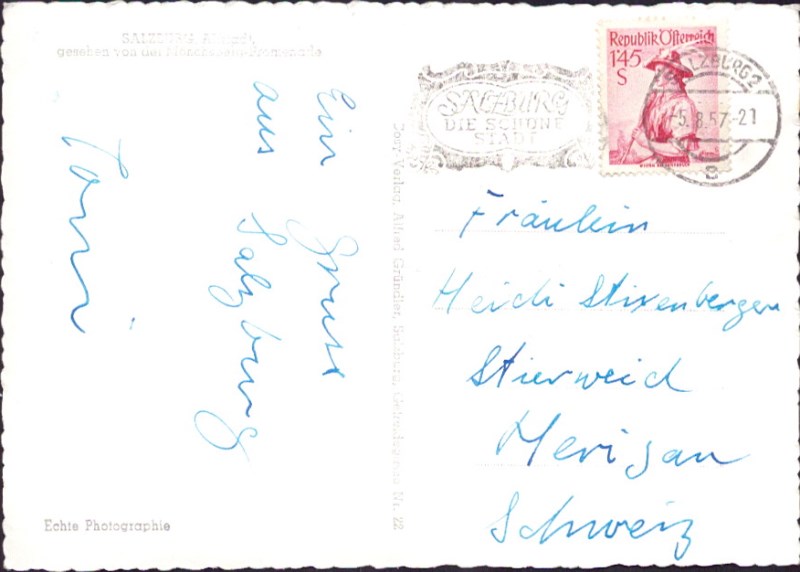 SALZBURG, Altstadt,
gesehen von der Mönchsberg-Promenade
Ein Gruss
aus Salzburg
Toni
Echte Photographie
Verlag, Alfred Gründler, Salzburg, Nr. 22
SALZBURG
DIE SCHÖNE
STADT
Republik Österreich
1'45
S
SALZBURG 2
-5.8.57-21
Fräulein
Heidi Stixenberger
Stierweid
Herisau
Schweiz